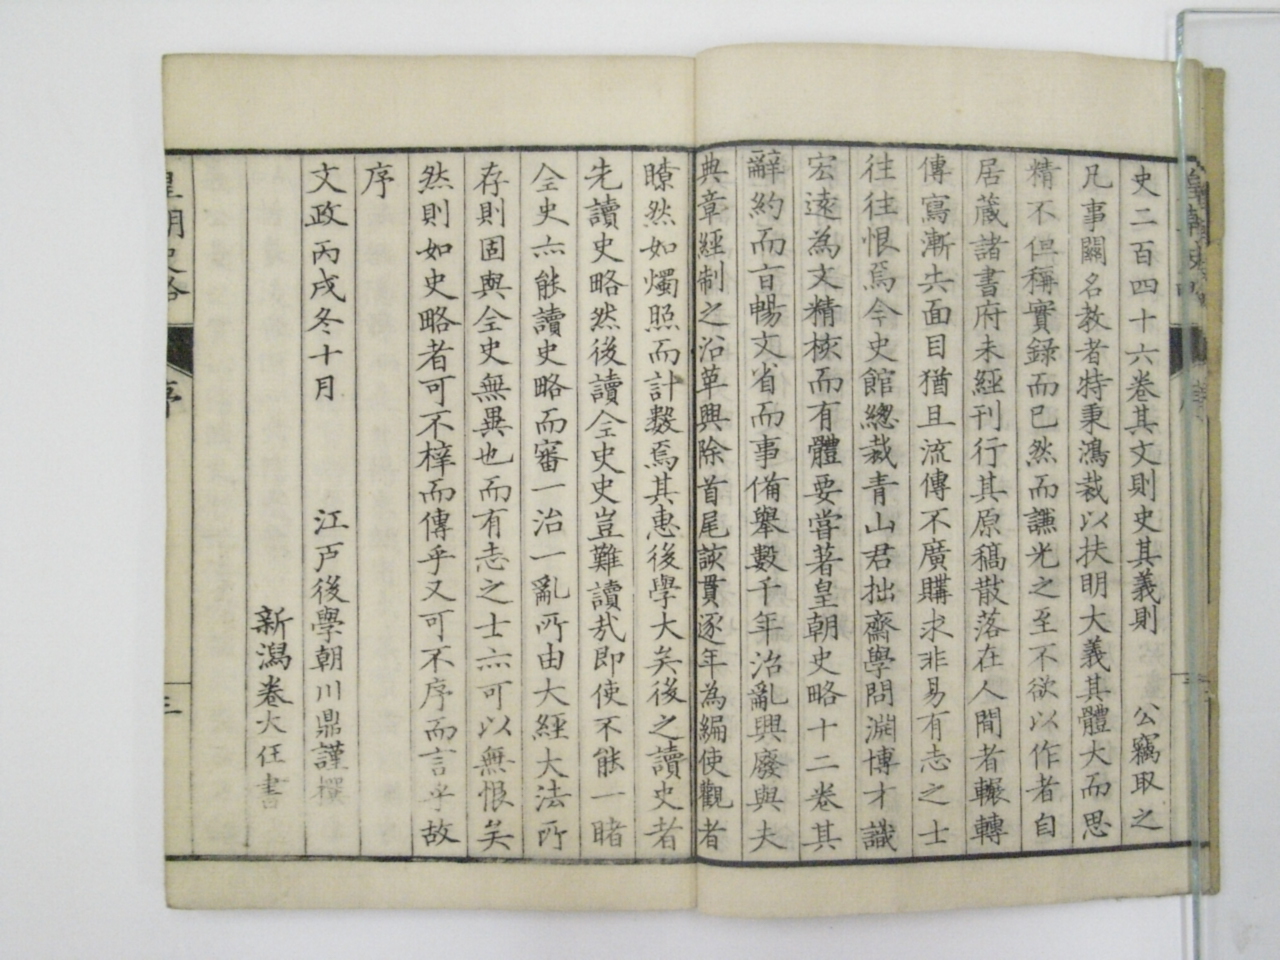 史二百四十六卷其文則史其義則 公竊取之
凡事關名教者特秉鴻裁以扶明大義其體大而思
精不但稱實錄而已然而謙光之至不欲以作者自
居蔵諸書府未經刊行其原稿散落在人間者輾轉
傳寫漸失面目猶且流傳不廣購求非易有志之士
往往恨焉今史館總裁青山君拙齋學問淵博才識
宏遠為文精核而有體要嘗著皇朝史略十二卷其
辭約而旨暢文省而事備舉數千年治亂興廢與夫
典章經制之沿革興除首尾該貫逐年為編使觀者
瞭然如燭照而計數焉其惠後學大矣後之讀史者
先讀史略然後讀全史史豈難讀㢤即使不能一睹
全史亦能讀史略而審一治一亂所由大經大法所
存則固與全史無異也而有志之士亦可以無恨矣
然則如史略者可不梓而傳乎又可不序而言乎故
序
文政丙戌冬十月 江戸後學朝川鼎謹撰
新潟卷大任書
皇朝史略 序 三